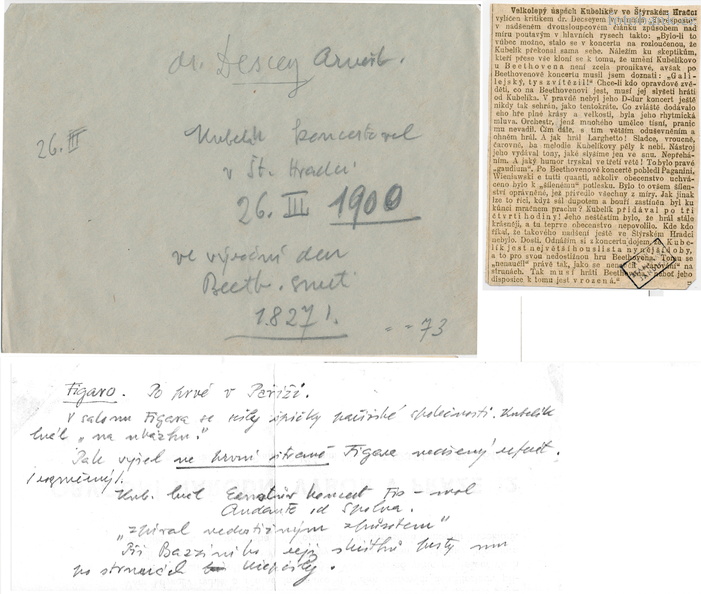 dr. Descey Arnošt.
26. III
Kubelík koncertoval
v Št. Hradci
26. III 1900
ve výroční den
Beeth. smrti
1827!
73
Velkolepý úspěch Kubelíkův ve Štýrském Hradci
vylíčen kritikem dr. Decseyem
v nadšeném dvousloupcovém článku způsobem nad
míru poutavým v hlavních rysech takto: „Bylo-li to
vůbec možno, stalo se v koncertu na rozloučenou, že
Kubelík překonal sama sebe. Náležím ku skeptikům,
kteří přese vše kloní se k tomu, že umění Kubelíkovo
u Beethovena není zcela pronikavé, avšak po
Beethovenově koncertu musil jsem doznati: „Gali-
lejský, tys zvítězil!“ Chce-li kdo opravdově zvě-
děti, co na Beethovenovi jest, musí jej slyšeti hráti
od Kubelíka. V pravdě nebyl jeho D-dur koncert ještě
nikdy tak sehrán, jako tentokráte. Co zvláště dodávalo
eho hře plné krásy a velkosti, byla jeho rhytmická
mluva. Orchestr, jenž mnohého umělce tísní, pranic
mu nevadil. Čím dále, s tím větším oduševněním a
ohněm hrál. A jak hrál Larghetto! Sladce, vroucně,
čarovně, ba melodie Kubelíkovy pěly k nebi. Nástroj
jeho vydával tony, jaké slyšíme jen ve snu. Nepřehá-
ním. A jaký humor tryskal ve třetí větě! Tobylo pravé
„gaudium“. Po Beethovenově koncertě pohledl Paganini,
Wieniawski e tutti quanti, ačkoliv obecenstvo uchvá-
ceno bylo k „šílenému“ potlesku. Bylo to ovšem šílen-
ství oprávněné, jež přivedlo všechny z míry. Jak jinak
lze to říci, když sál dupotem a bouří zastíněn byl ku
kůnzi mračnem prachu? Kubelík přidával po tři
čtvrti hodiny! Jeho neštěstím bylo, že hrál stále
krásněji, a tu teprve obecenstvo nepovolilo. Kde kdo
říkal, že takového nadšení ještě ve Štýrském Hradci
nebylo. Dosti. Odnáším si z koncertu dojem, že Kube-
lík jest největší houslista nynější doby,
a to pro svou nedostižnou hru Beethovena. Tomu se
„nenaučil“ právě tak, jako se nenaučil „čarování“ na
strunách. Tak musí hráti Beethovena, neboť jeho
disposice k tomu jest vrozená.“
Figaro. Po prvé v Paříži.
V salonu Figara se sešly špičky pařížské společnosti. Kubelík
hrál „na ukázku.“
Pak vyšel na první straně Figara nadšený referát.
Kub. hrál Ernstův koncert Fis-mol
Andante od Spohra.
„zpíval nedostižným způsobem“
Při Bazziniho její skvělé prsty mu
po strunách